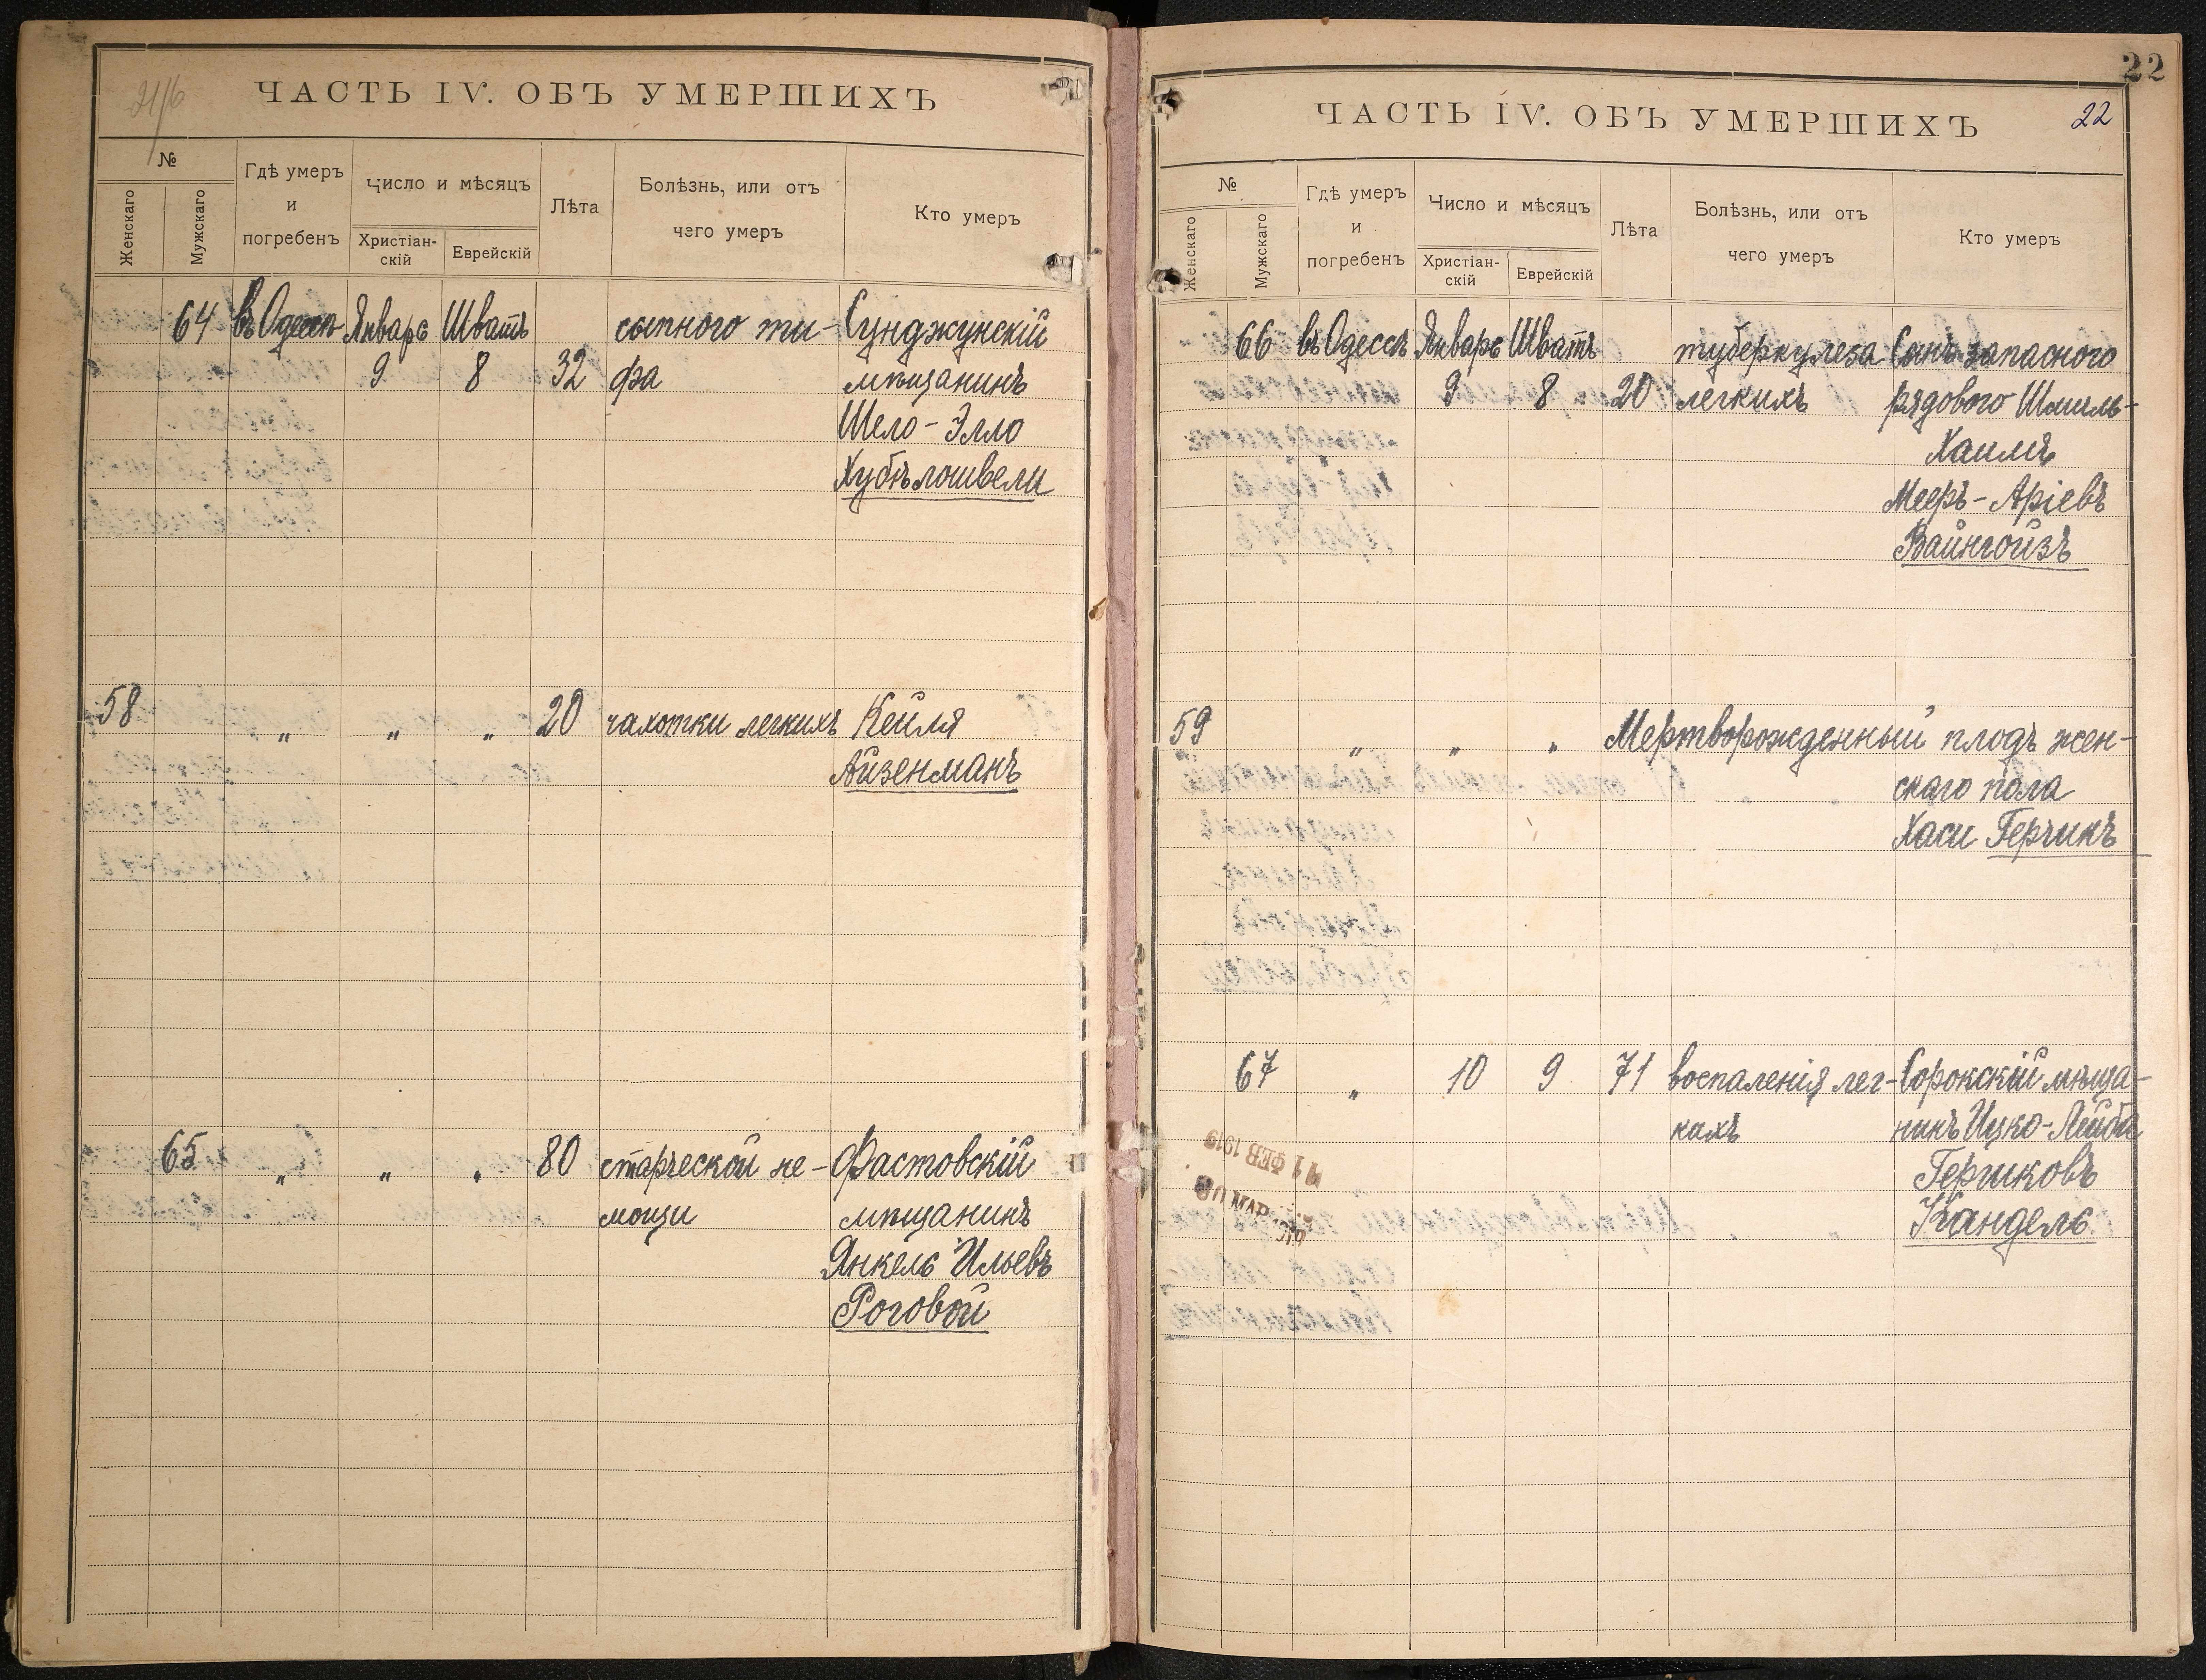 ЧАСТЬ IV. ОБЪ УМЕРШИХЪ
№
Женскаго
Мужскаго
Гдѣ умеръ
и
погребенъ
Число и мѣсяцъ
Христіан-
скій
Еврейскій
Лѣта
Болѣзнь, или отъ
чего умеръ
Кто умеръ
64 въ Одессѣ Январь Шватъ сыпного ти- Сунджунскій
9 8 32 фа мѣщанинъ
Шело-Элло
Хубѣлошвели
58 „ „ „ 20 чахотки легкихъ Кейля
Айзенманъ
65 „ „ „ 80 старческой не- Фастовскій
мощи мѣщанинъ
Янкель Ильевъ
Роговой
22
ЧАСТЬ IV. ОБЪ УМЕРШИХЪ
22
№
Женскаго
Мужскаго
Гдѣ умеръ
и
погребенъ
Число и мѣсяцъ
Христіан-
скій
Еврейскій
Лѣта
Болѣзнь, или отъ
чего умеръ
Кто умеръ
66 въ Одессѣ Январь Шватъ туберкулеза Сынъ запасного
9 8 20 легкихъ рядового Шмиль-
Хаимъ
Мееръ-Аріевъ
Вайнгойзъ
59 „ „ „ Мертворожденный плодъ жен-
скаго пола
Хаси Герчикъ
67 „ 10 9 71 воспаленія лег- Сорокскій мѣща-
кихъ нинъ Ицко-Лейба
Гершковъ
Кандель
11 ФЕВ 1919